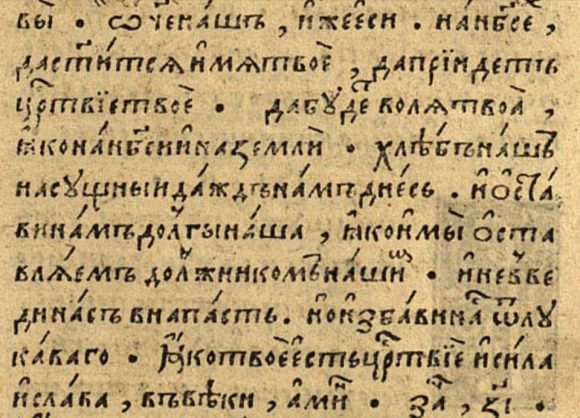 вы̀ · ѿч҃ена́шъ , и҆́жеѐси · нан҃бсѐ ,
дас҃ти́тсѧи҆́мѧтвоѐ , дапрїи́детъ
цр҃твїетвоѐ · дабꙋ́дѐволѧ҆твоѧ̀ ,
ꙗ҆конан҃бсиѝназемлѝ · хлѣ́бъна́шъ
насꙋ́щныида́ждьна́мъдне́сь . и҆ѻста́
вина́мъдо́лгына́ша , ꙗ҆́коимы̀ ѻ҆ста
влѧ́емъ до́лжникомъна́шиⷨ · и҆невве
дина́съвнапа́сть. но̀избавина̀ ѿлꙋ
ка́ваго · ꙗ҆́котвоѐе҆стьцр҃твїѐ и҆си́ла
и҆сла́ва , въвѣ́ки , а҆ми́н · за҃ , хі҃ ·